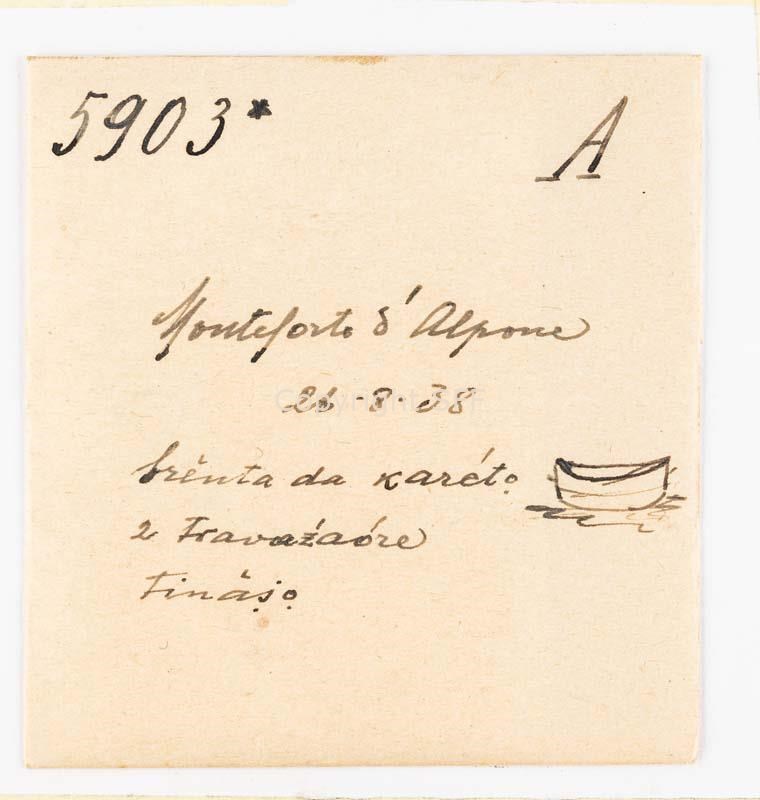 5903*
A
Monteforte d'Alpone
26-8-38
brénta da karéto̤
2 travaźaóre
tinăs̤o̤